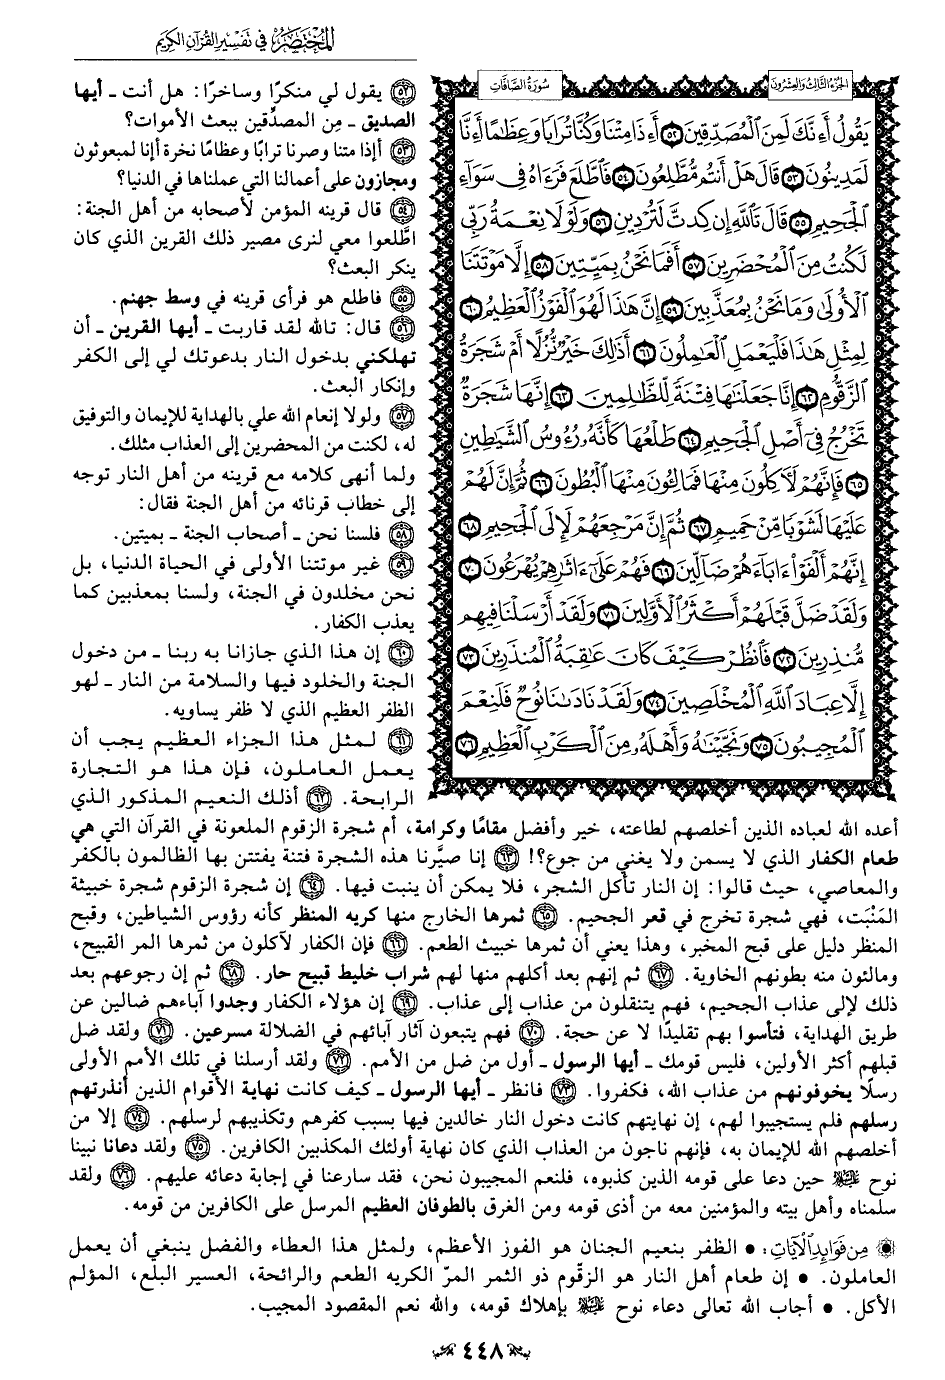 المختصر في تفسير القرآن الكريم
الجزء الثالث والعشرون
سورة الصافات
يَقُولُ أَءِنَّكَ لَمِنَ ٱلۡمُصَدِّقِينَ ٥٢ أَءِذَا مِتۡنَا وَكُنَّا تُرَابٗا وَعِظَٰمًا أَءِنَّا
لَمَدِينُونَ ٥٣ قَالَ هَلۡ أَنتُم مُّطَّلِعُونَ ٥٤ فَٱطَّلَعَ فَرَءَاهُ فِي سَوَآءِ
ٱلۡجَحِيمِ ٥٥ قَالَ تَٱللَّهِ إِن كِدتَّ لَتُرۡدِينِ ٥٦ وَلَوۡلَا نِعۡمَةُ رَبِّي
لَكُنتُ مِنَ ٱلۡمُحۡضَرِينَ ٥٧ أَفَمَا نَحۡنُ بِمَيِّتِينَ ٥٨ إِلَّا مَوۡتَتَنَا
ٱلۡأُولَىٰ وَمَا نَحۡنُ بِمُعَذَّبِينَ ٥٩ إِنَّ هَٰذَا لَهُوَ ٱلۡفَوۡزُ ٱلۡعَظِيمُ ٦٠
لِمِثۡلِ هَٰذَا فَلۡيَعۡمَلِ ٱلۡعَٰمِلُونَ ٦١ أَذَٰلِكَ خَيۡرٞ نُّزُلًا أَمۡ شَجَرَةُ
ٱلزَّقُّومِ ٦٢ إِنَّا جَعَلۡنَٰهَا فِتۡنَةٗ لِّلظَّٰلِمِينَ ٦٣ إِنَّهَا شَجَرَةٞ
تَخۡرُجُ فِيٓ أَصۡلِ ٱلۡجَحِيمِ ٦٤ طَلۡعُهَا كَأَنَّهُۥ رُءُوسُ ٱلشَّيَٰطِينِ
٦٥ فَإِنَّهُمۡ لَأٓكِلُونَ مِنۡهَا فَمَالِـُٔونَ مِنۡهَا ٱلۡبُطُونَ ٦٦ ثُمَّ إِنَّ لَهُمۡ
عَلَيۡهَا لَشَوۡبٗا مِّنۡ حَمِيمٖ ٦٧ ثُمَّ إِنَّ مَرۡجِعَهُمۡ لَإِلَى ٱلۡجَحِيمِ ٦٨
إِنَّهُمۡ أَلۡفَوۡاْ ءَابَآءَهُمۡ ضَآلِّينَ ٦٩ فَهُمۡ عَلَىٰٓ ءَاثَٰرِهِمۡ يُهۡرَعُونَ ٧٠
وَلَقَدۡ ضَلَّ قَبۡلَهُمۡ أَكۡثَرُ ٱلۡأَوَّلِينَ ٧١ وَلَقَدۡ أَرۡسَلۡنَا فِيهِم
مُّنذِرِينَ ٧٢ فَٱنظُرۡ كَيۡفَ كَانَ عَٰقِبَةُ ٱلۡمُنذَرِينَ ٧٣
إِلَّا عِبَادَ ٱللَّهِ ٱلۡمُخۡلَصِينَ ٧٤ وَلَقَدۡ نَادَىٰنَا نُوحٞ فَلَنِعۡمَ
ٱلۡمُجِيبُونَ ٧٥ وَنَجَّيۡنَٰهُ وَأَهۡلَهُۥ مِنَ ٱلۡكَرۡبِ ٱلۡعَظِيمِ ٧٦
٥٢ يقول لي منكرًا وساخرًا: هل أنت ـ أيها
الصديق ـ مِن المصدِّقين ببعث الأموات؟
٥٣ أإذا متنا وصرنا ترابًا وعظامًا نخرة أإنا لمبعوثون
ومجازون على أعمالنا التي عملناها في الدنيا؟
٥٤ قال قرينه المؤمن لأصحابه من أهل الجنة:
اطَّلعوا معي لنرى مصير ذلك القرين الذي كان
ينكر البعث؟
٥٥ فاطلع هو فرأى قرينه في وسط جهنم.
٥٦ قال: تالله لقد قاربت ـ أيها القرين ـ أن
تهلكني بدخول النار بدعوتك لي إلى الكفر
وإنكار البعث.
٥٧ ولولا إنعام الله علي بالهداية للإيمان والتوفيق
له، لكنت من المحضرين إلى العذاب مثلك.
ولما أنهى كلامه مع قرينه من أهل النار توجه
إلى خطاب قرنائه من أهل الجنة فقال:
٥٨ فلسنا نحن ـ أصحاب الجنة ـ بميتين.
٥٩ غير موتتنا الأولى في الحياة الدنيا، بل
نحن مخلدون في الجنة، ولسنا بمعذبين كما
يعذب الكفار.
٦٠ إن هذا الذي جازانا به ربنا ـ من دخول
الجنة والخلود فيها والسلامة من النار ـ لهو
الظفر العظيم الذي لا ظفر يساويه.
٦١ لمثل هذا الجزاء العظيم يجب أن
يعمل العاملون، فإن هذا هو التجارة
الرابحة. ٦٢ أذلك النعيم المذكور الذي
أعده الله لعباده الذين أخلصهم لطاعته، خير وأفضل مقامًا وكرامة، أم شجرة الزقوم الملعونة في القرآن التي هي
طعام الكفار الذي لا يسمن ولا يغني من جوع؟! ٦٣ إنا صيَّرنا هذه الشجرة فتنة يفتتن بها الظالمون بالكفر
والمعاصي، حيث قالوا: إن النار تأكل الشجر، فلا يمكن أن ينبت فيها. ٦٤ إن شجرة الزقوم شجرة خبيثة
المَنْبَت، فهي شجرة تخرج في قعر الجحيم. ٦٥ ثمرها الخارج منها كريه المنظر كأنه رؤوس الشياطين، وقبح
المنظر دليل على قبح المخبر، وهذا يعني أن ثمرها خبيث الطعم. ٦٦ فإن الكفار لآكلون من ثمرها المر القبيح،
ومالئون منه بطونهم الخاوية. ٦٧ ثم إنهم بعد أكلهم منها لهم شراب خليط قبيح حار. ٦٨ ثم إن رجوعهم بعد
ذلك لإلى عذاب الجحيم، فهم يتنقلون من عذاب إلى عذاب. ٦٩ إن هؤلاء الكفار وجدوا آباءهم ضالين عن
طريق الهداية، فتأسوا بهم تقليدًا لا عن حجة. ٧٠ فهم يتبعون آثار آبائهم في الضلالة مسرعين. ٧١ ولقد ضل
قبلهم أكثر الأولين، فليس قومك ـ أيها الرسول ـ أول من ضل من الأمم. ٧٢ ولقد أرسلنا في تلك الأمم الأولى
رسلًا يخوفونهم من عذاب الله، فكفروا. ٧٣ فانظر ـ أيها الرسول ـ كيف كانت نهاية الأقوام الذين أنذرتهم
رسلهم فلم يستجيبوا لهم، إن نهايتهم كانت دخول النار خالدين فيها بسبب كفرهم وتكذيبهم لرسلهم. ٧٤ إلا من
أخلصهم الله للإيمان به، فإنهم ناجون من العذاب الذي كان نهاية أولئك المكذبين الكافرين. ٧٥ ولقد دعانا نبينا
نوح عليه السلام حين دعا على قومه الذين كذبوه، فلنعم المجيبون نحن، فقد سارعنا في إجابة دعائه عليهم. ٧٦ ولقد
سلمناه وأهل بيته والمؤمنين معه من أذى قومه ومن الغرق بالطوفان العظيم المرسل على الكافرين من قومه.
من فوائد الآيات: • الظفر بنعيم الجنان هو الفوز الأعظم، ولمثل هذا العطاء والفضل ينبغي أن يعمل
العاملون. • إن طعام أهل النار هو الزقّوم ذو الثمر المرّ الكريه الطعم والرائحة، العسير البلع، المؤلم
الأكل. • أجاب الله تعالى دعاء نوح عليه السلام بإهلاك قومه، والله نعم المقصود المجيب.
٤٤٨